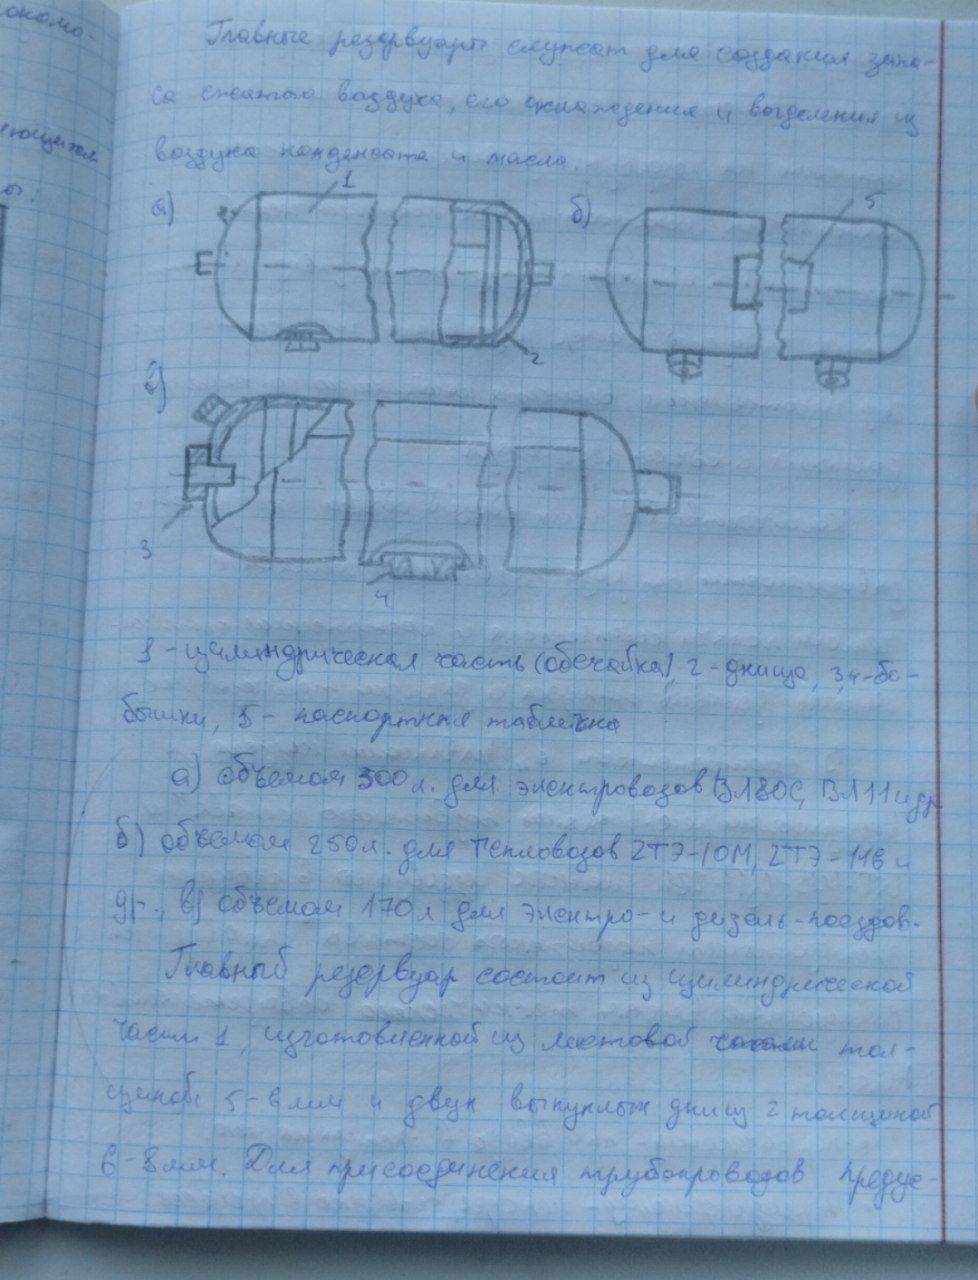 окомо-
ющихся
Главные резервуары служат для создания запа-
са сжатого воздуха, его охлаждения и выделения из
воздуха конденсата и масла.
а)
1
б)
5
2
в)
3
4
1 - цилиндрическая часть (обечайка), 2 - днища, 3,4 - бо-
бышки, 5 - паспортная табличка
а) объемом 300 л. для электровозов ВЛ80С, ВЛ11 и др
б) объемом 250 л. для тепловозов 2ТЭ-10М, 2ТЭ-116 и
др., в) объемом 170 л для электро- и дизель-поездов.
Главный резервуар состоит из цилиндрической
части 1, изготовленной из листовой стали тол-
щиной 5-6 мм и двух выпуклых днищ 2 толщиной
6-8 мм. Для присоединения трубопроводов предус-